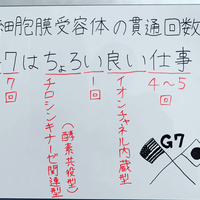 細胞膜受容体の貫通回数
7はちょろい良い仕事
7回
1回
4〜5回
チロシンキナーゼ関連型
(酵素共役型)
イオンチャネル内蔵型
G7